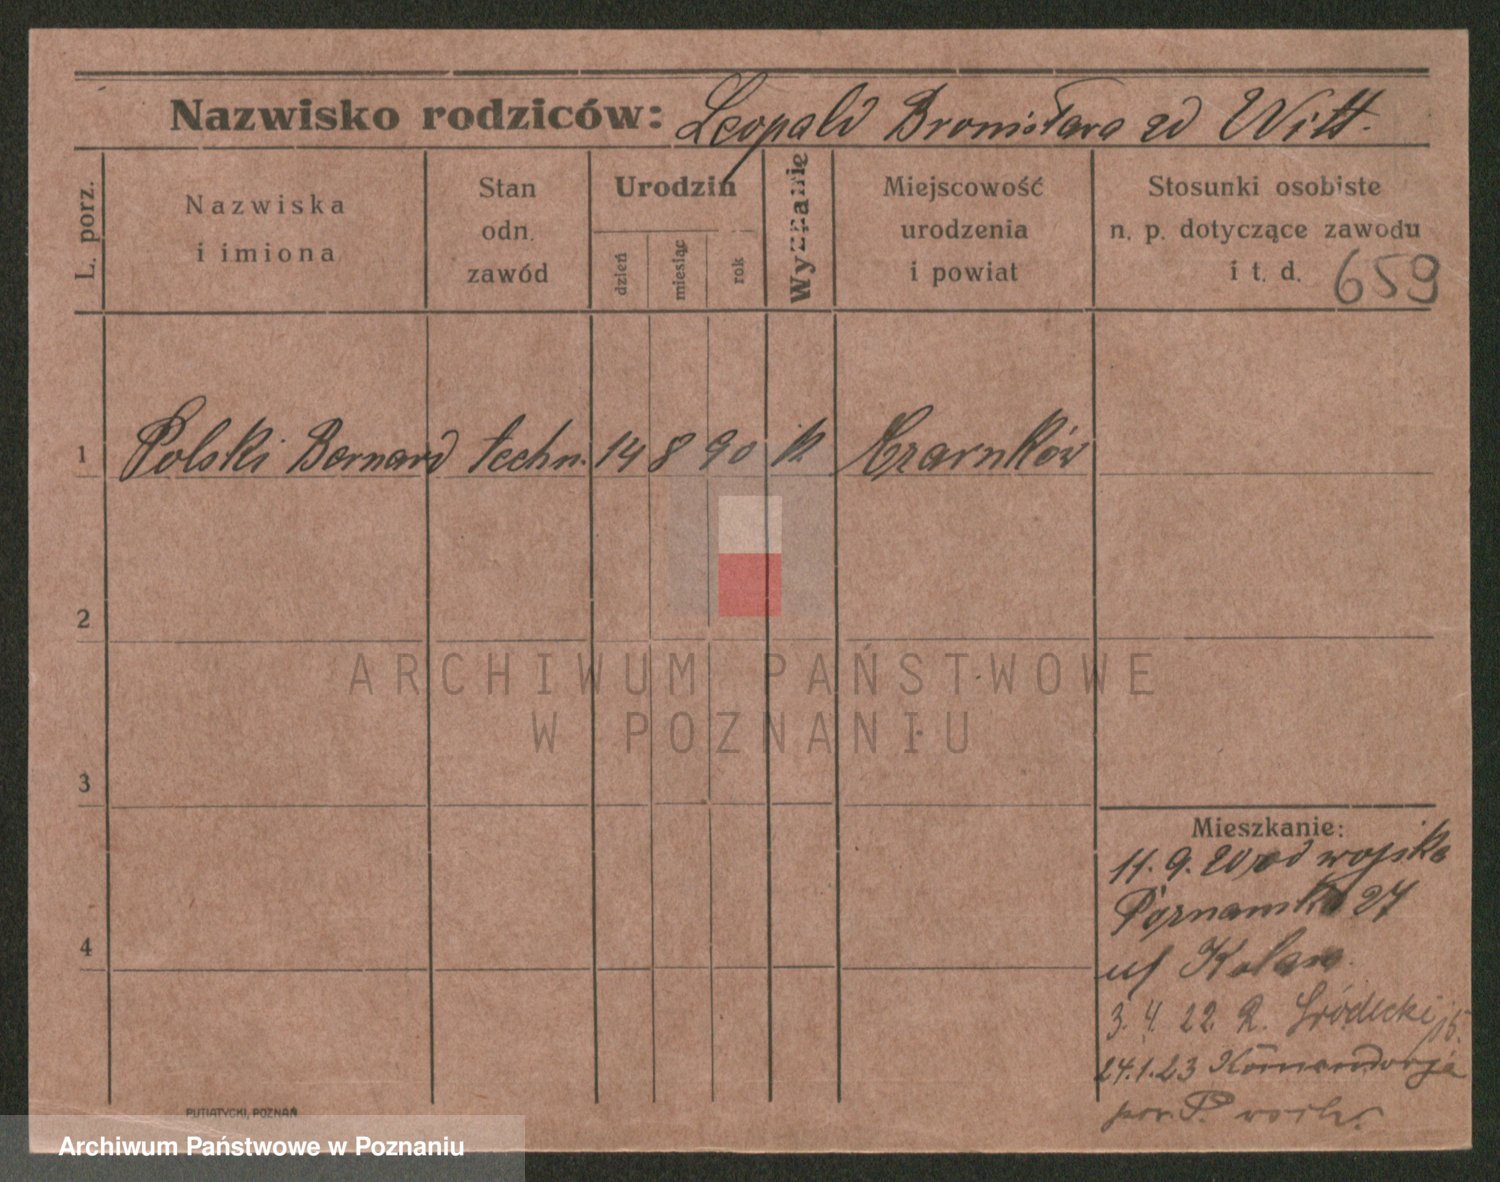 Nazwisko rodziców: Leopold Bronisława zd Witt.
L. porz.
Nazwiska
i imiona
Stan
odn.
zawód
Urodzin
dzień
miesiąc
rok
Wyznanie
Miejscowość
urodzenia
i powiat
Stosunki osobiste
n. p. dotyczące zawodu
i t. d. 659
1 Polski Bernard techn. 14 8 90 k Czarnków
2
ARCHIWUM PAŃSTWOWE
W POZNANIU
3
4
Mieszkanie:
11. 9. 20 od wojska
Poznańska 27
3. 4. 22. R. Gródecki
24.1.23 Komandorja
pow. P.
PUTIATYCKI, POZNAŃ
Archiwum Państwowe w Poznaniu